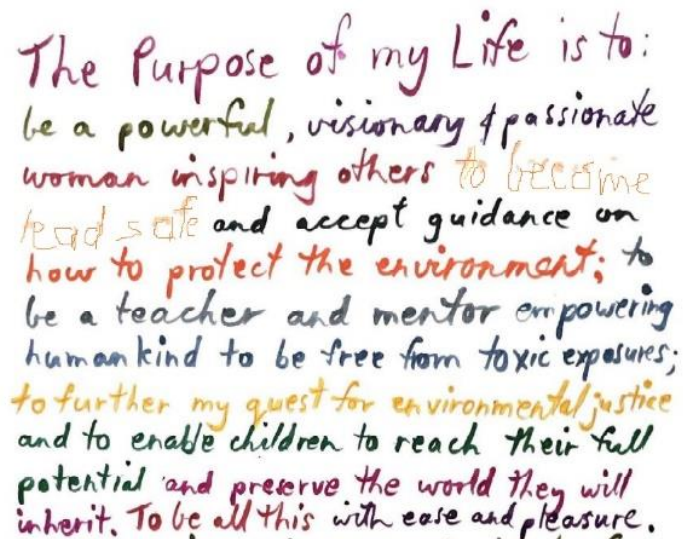 The Purpose of my Life is to:
be a powerful, visionary & passionate
woman inspiring others to become
lead safe and accept guidance on
how to protect the environment; to
be a teacher and mentor empowering
humankind to be free from toxic exposures;
to further my quest for environmental justice
and to enable children to reach their full
potential and preserve the world they will
inherit. To be all this with ease and pleasure.